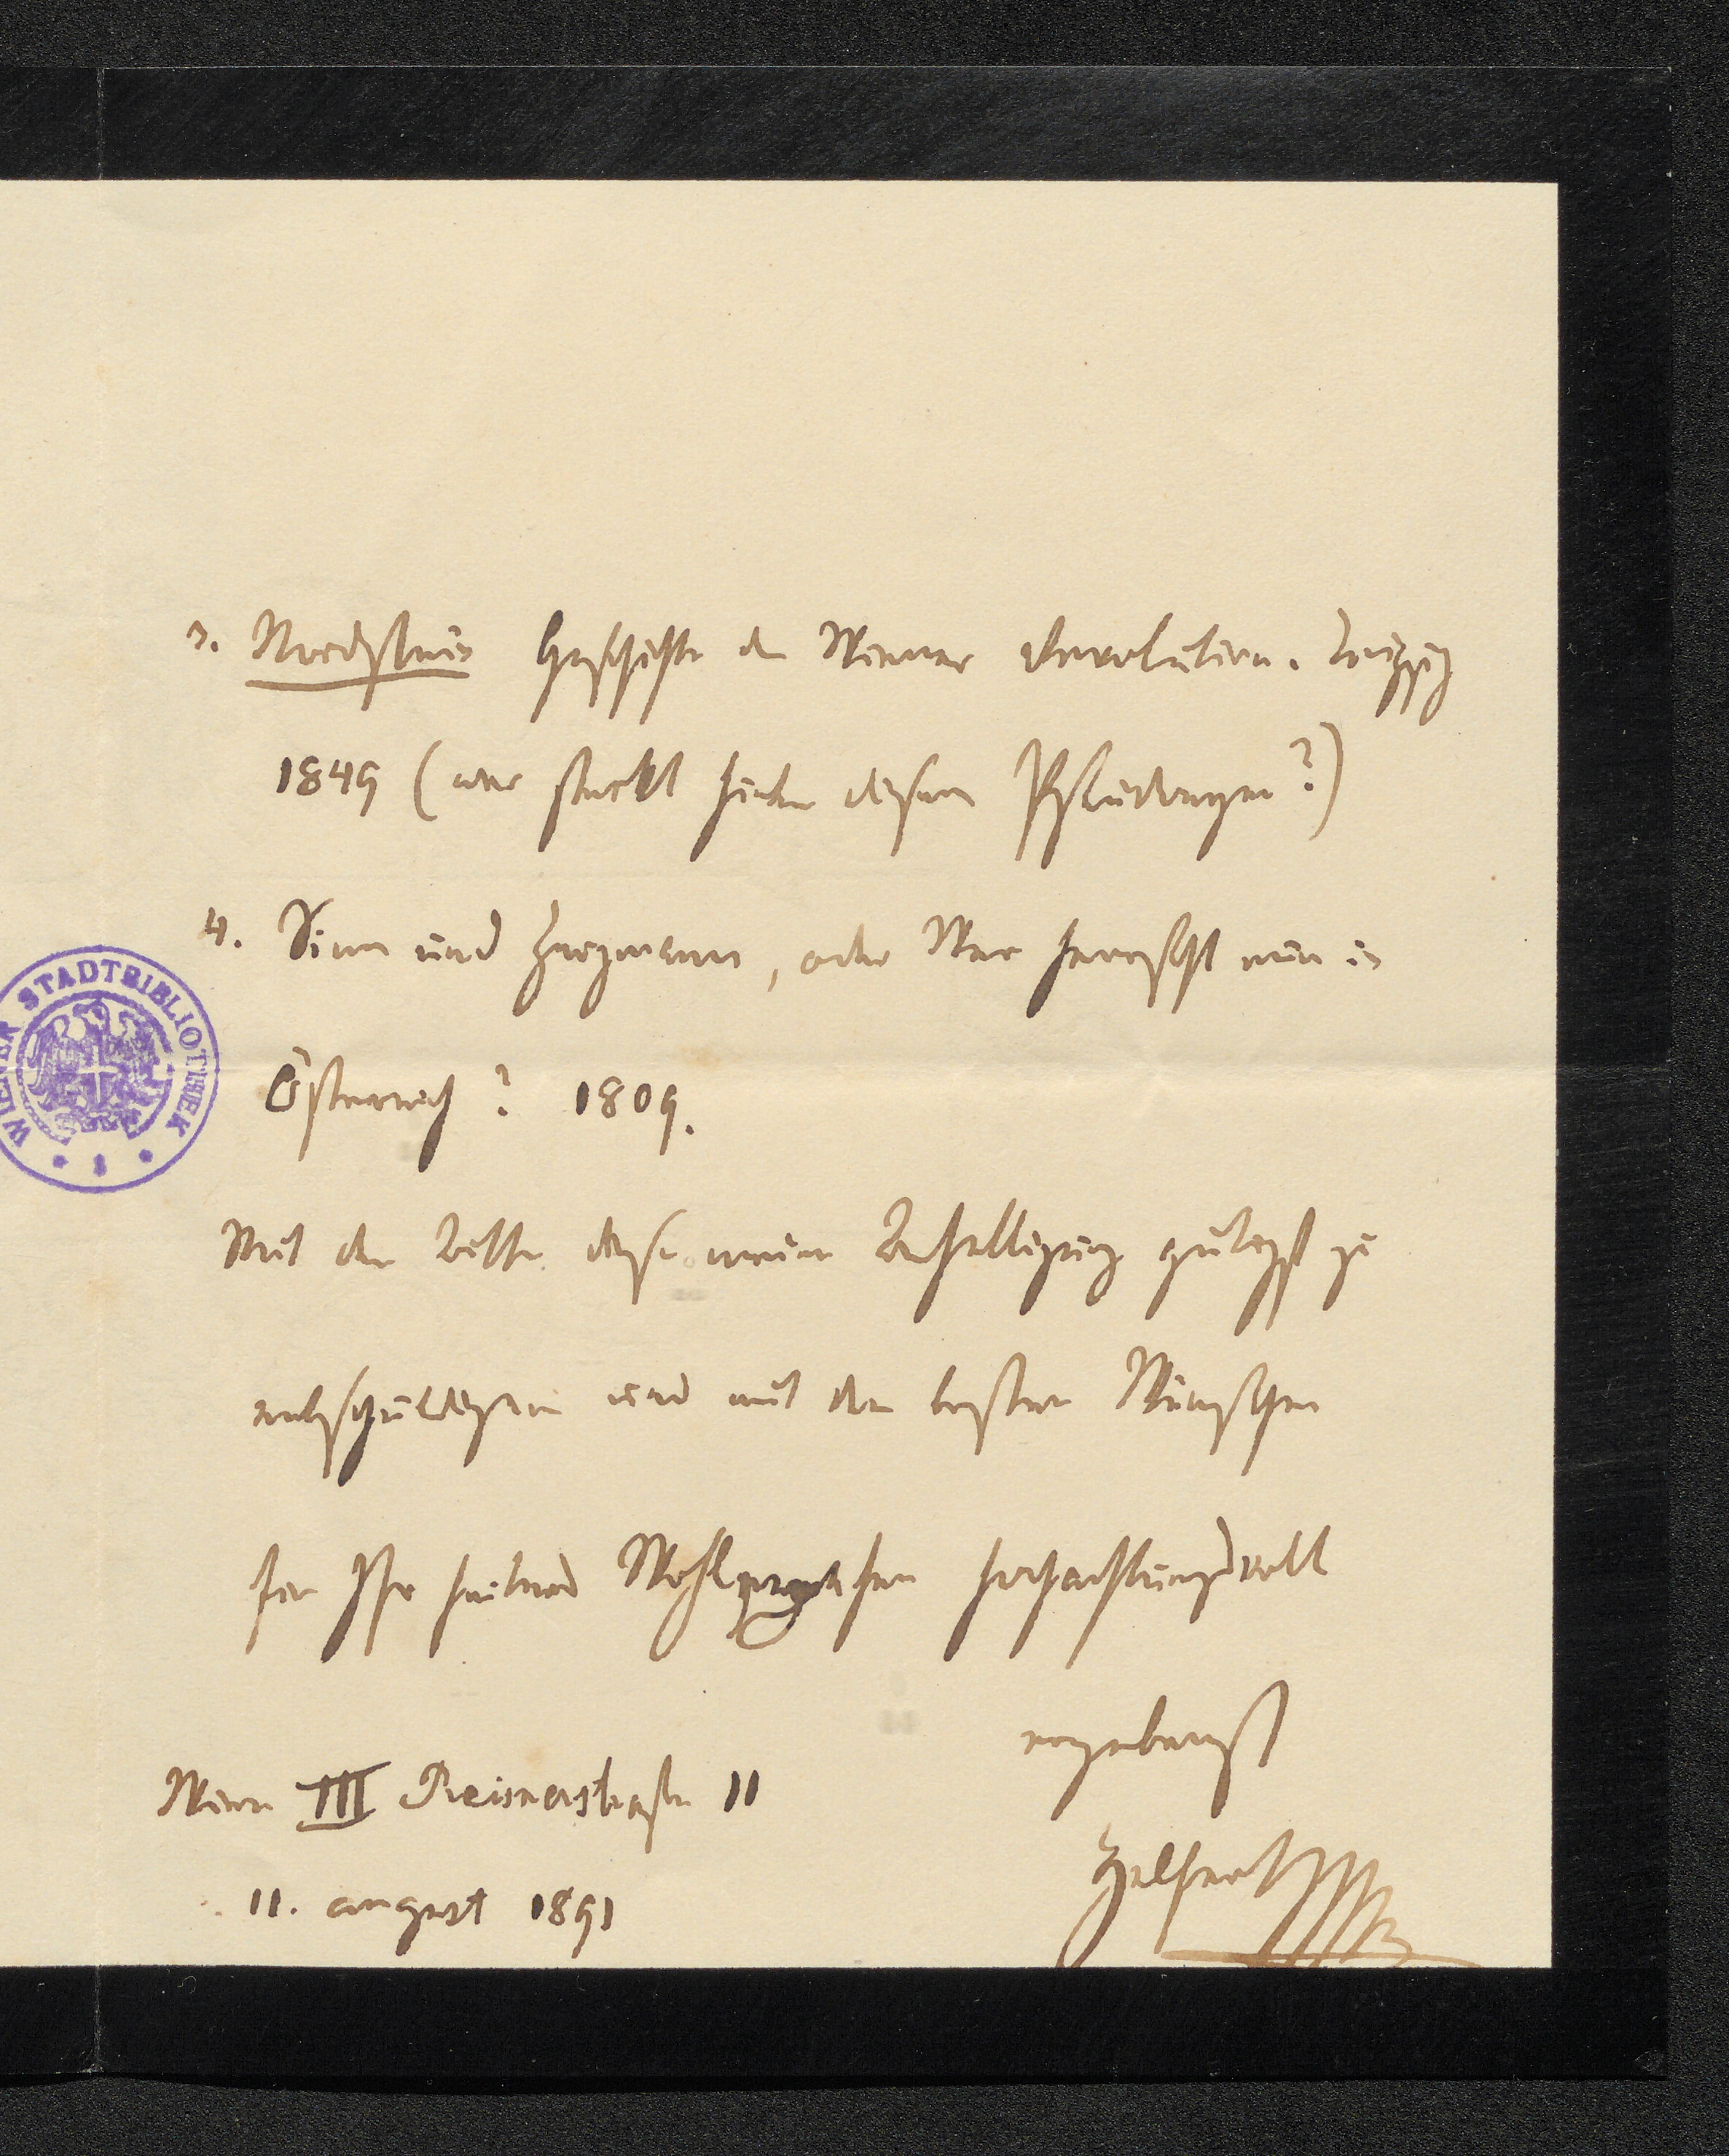 3. Nordstein Geschichte der Wiener Revolution. Leipzig
1849 (wer steckt hinter diesem Pseudonym?)
4. Sinn und Herz, oder Wer herrscht nun in
Österreich? 1809.
WIENER STADTBIBLIOTHEK
Mit der Bitte diese meine Behelligung gütigst zu
entschuldigen und mit den besten Wünschen
für Ihr Wohlergehen hochachtungsvoll
ergebenst
Wien III Reisnerstraße 11
Helfert
11. august 1891